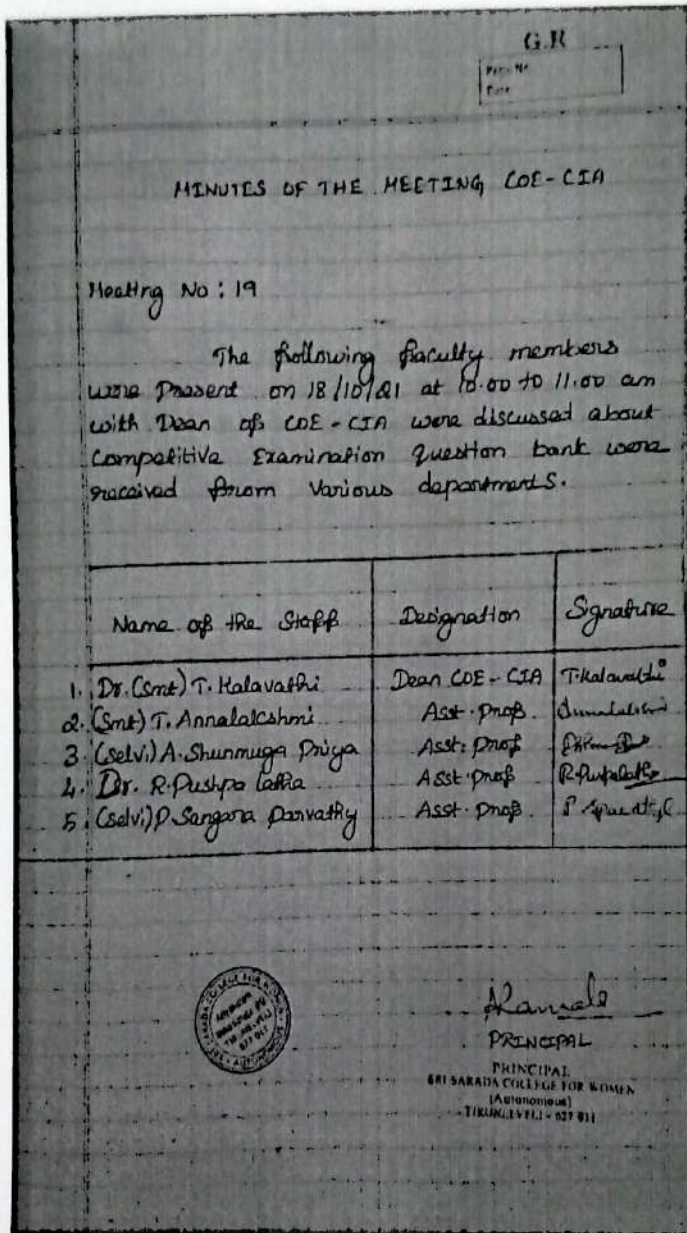 G.R
Page No
Date
MINUTES OF THE MEETING COE-CIA
Meeting No : 19
The following faculty members
were Present on 18/10/21 at 10.00 to 11.00 am
with Dean of COE-CIA were discussed about
Compatitive Examination Question bank were
received from Various departments.
Name of the Staff Designation Signature
1. Dr. (Smt) T. Kalavathi Dean COE-CIA T.Kalavathi
2. (Smt) T. Annalakshmi Asst. Prof.
3. (Selvi) A. Shunmuga Priya Asst. Prof
4. Dr. R. Pushpa latha Asst. Prof R.Pushpalatha
5. (Selvi) P. Sangara Parvathy Asst. Prof.
PRINCIPAL
PRINCIPAL
SRI SARADA COLLEGE FOR WOMEN
(Autonomous)
TIRUNELVELI - 627 011